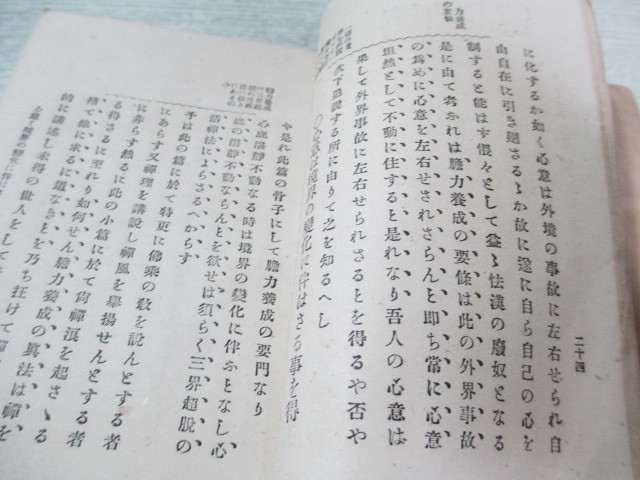 二十四
力養成
の要領
に化するか如く心意は外境の事故に左右せられ自
由自在に引き廻さるゝか故に遂に自ら自己の心を
制すると能はす恨々として益〻怯漢の廢奴となる
是に由て考ふれは膽力養成の要條は此の外界事故
の爲めに心意を左右せされさらんと即ち常に心意
坦然として不動に住すると是れなり吾人の心意は
果して外界事故に左右せられさるとを得るや否や
次下追説する所に由りて之を知るへし
〇心意は境界の變化に伴はさる事を得
や是れ此篇の骨子にして膽力養成の要門なり
心鹿湛靜不動なる時は境界の變化に伴ふとなし心
鹿の湛靜不動ならんとを欲せは須らく三界超脱の
活禪法によらさるへからす
予は此篇に於て特更に佛乘の敎を説んとする者
にあらす又禪理を講説し禪風を擧揚せんとする者
に非らす然るに此の小篇に於て尙禪浪を起さゝる
を得さるに至れり如何せん膽力養成の眞法は禪を
捨て他に求るに道なきとを乃ち狂けて
的に講述し未得の世人をして